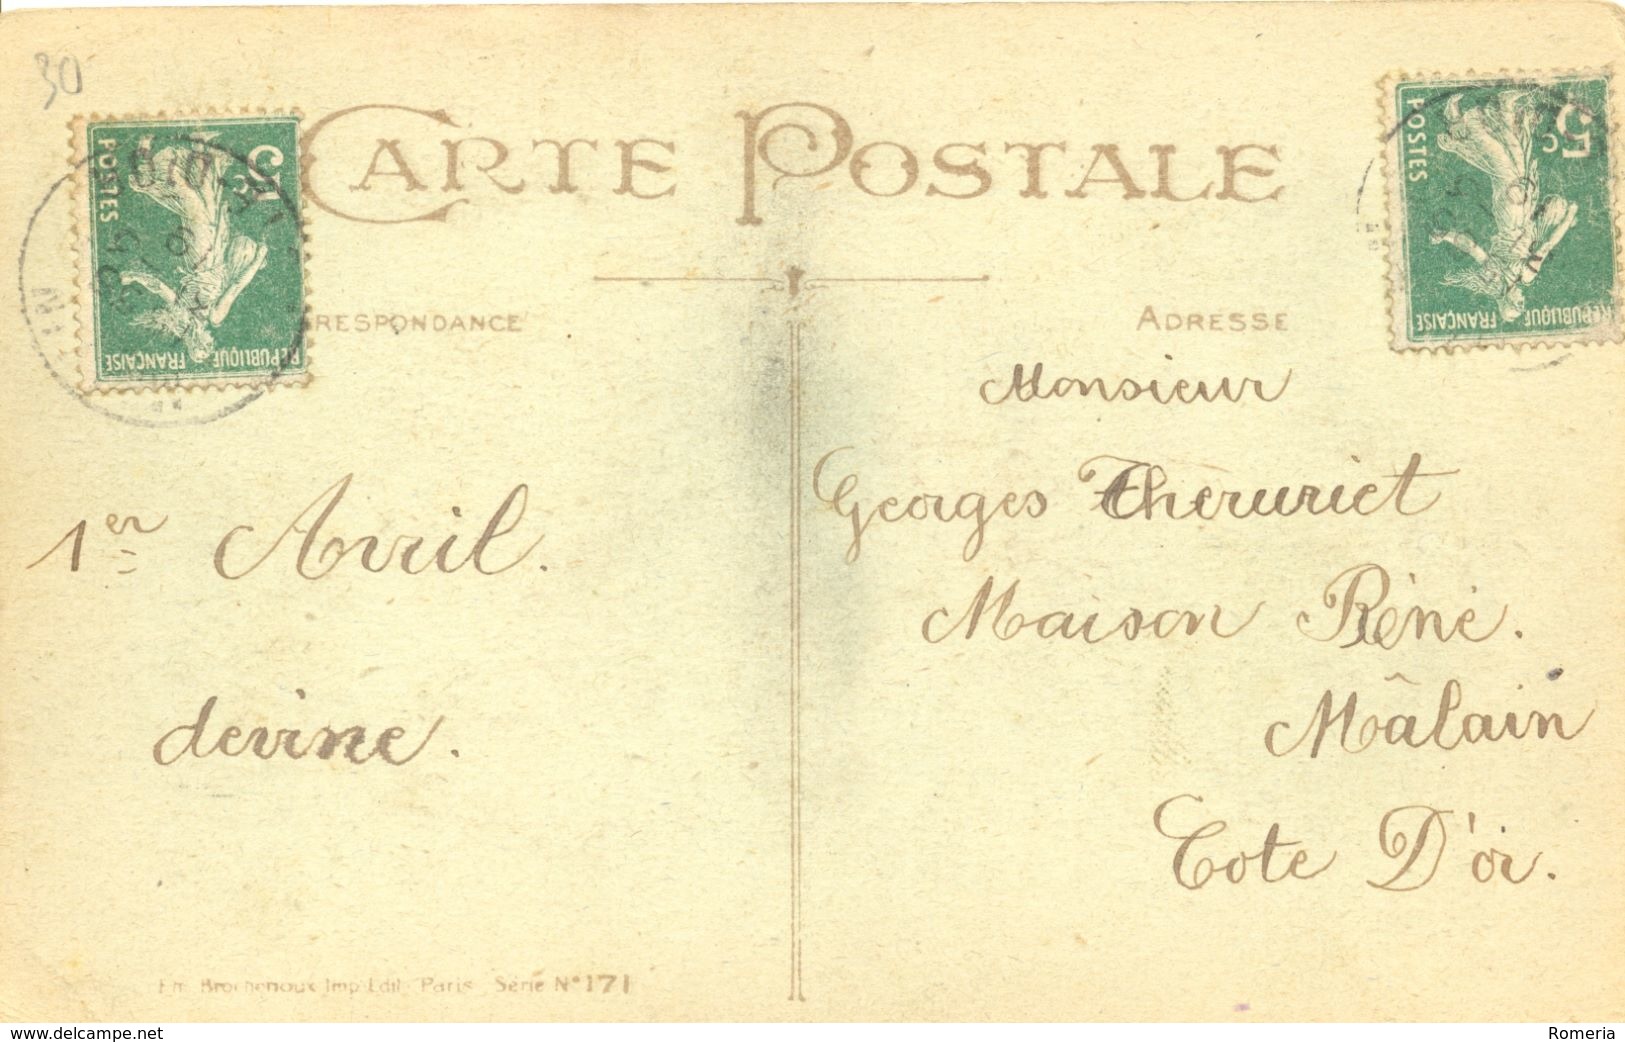 30
CARTE POSTALE
POSTES
5c
REPUBLIQUE FRANÇAISE
POSTES
5c
REPUBLIQUE FRANÇAISE
RESPONDANCE
ADRESSE
1er Avril.
devine.
Monsieur
Georges Theruriet
Maison Réné.
Mâlain
Cote D'or.
Em. Brochenoux Imp. Edit. Paris Série N° 171
www.delcampe.net
Romeria